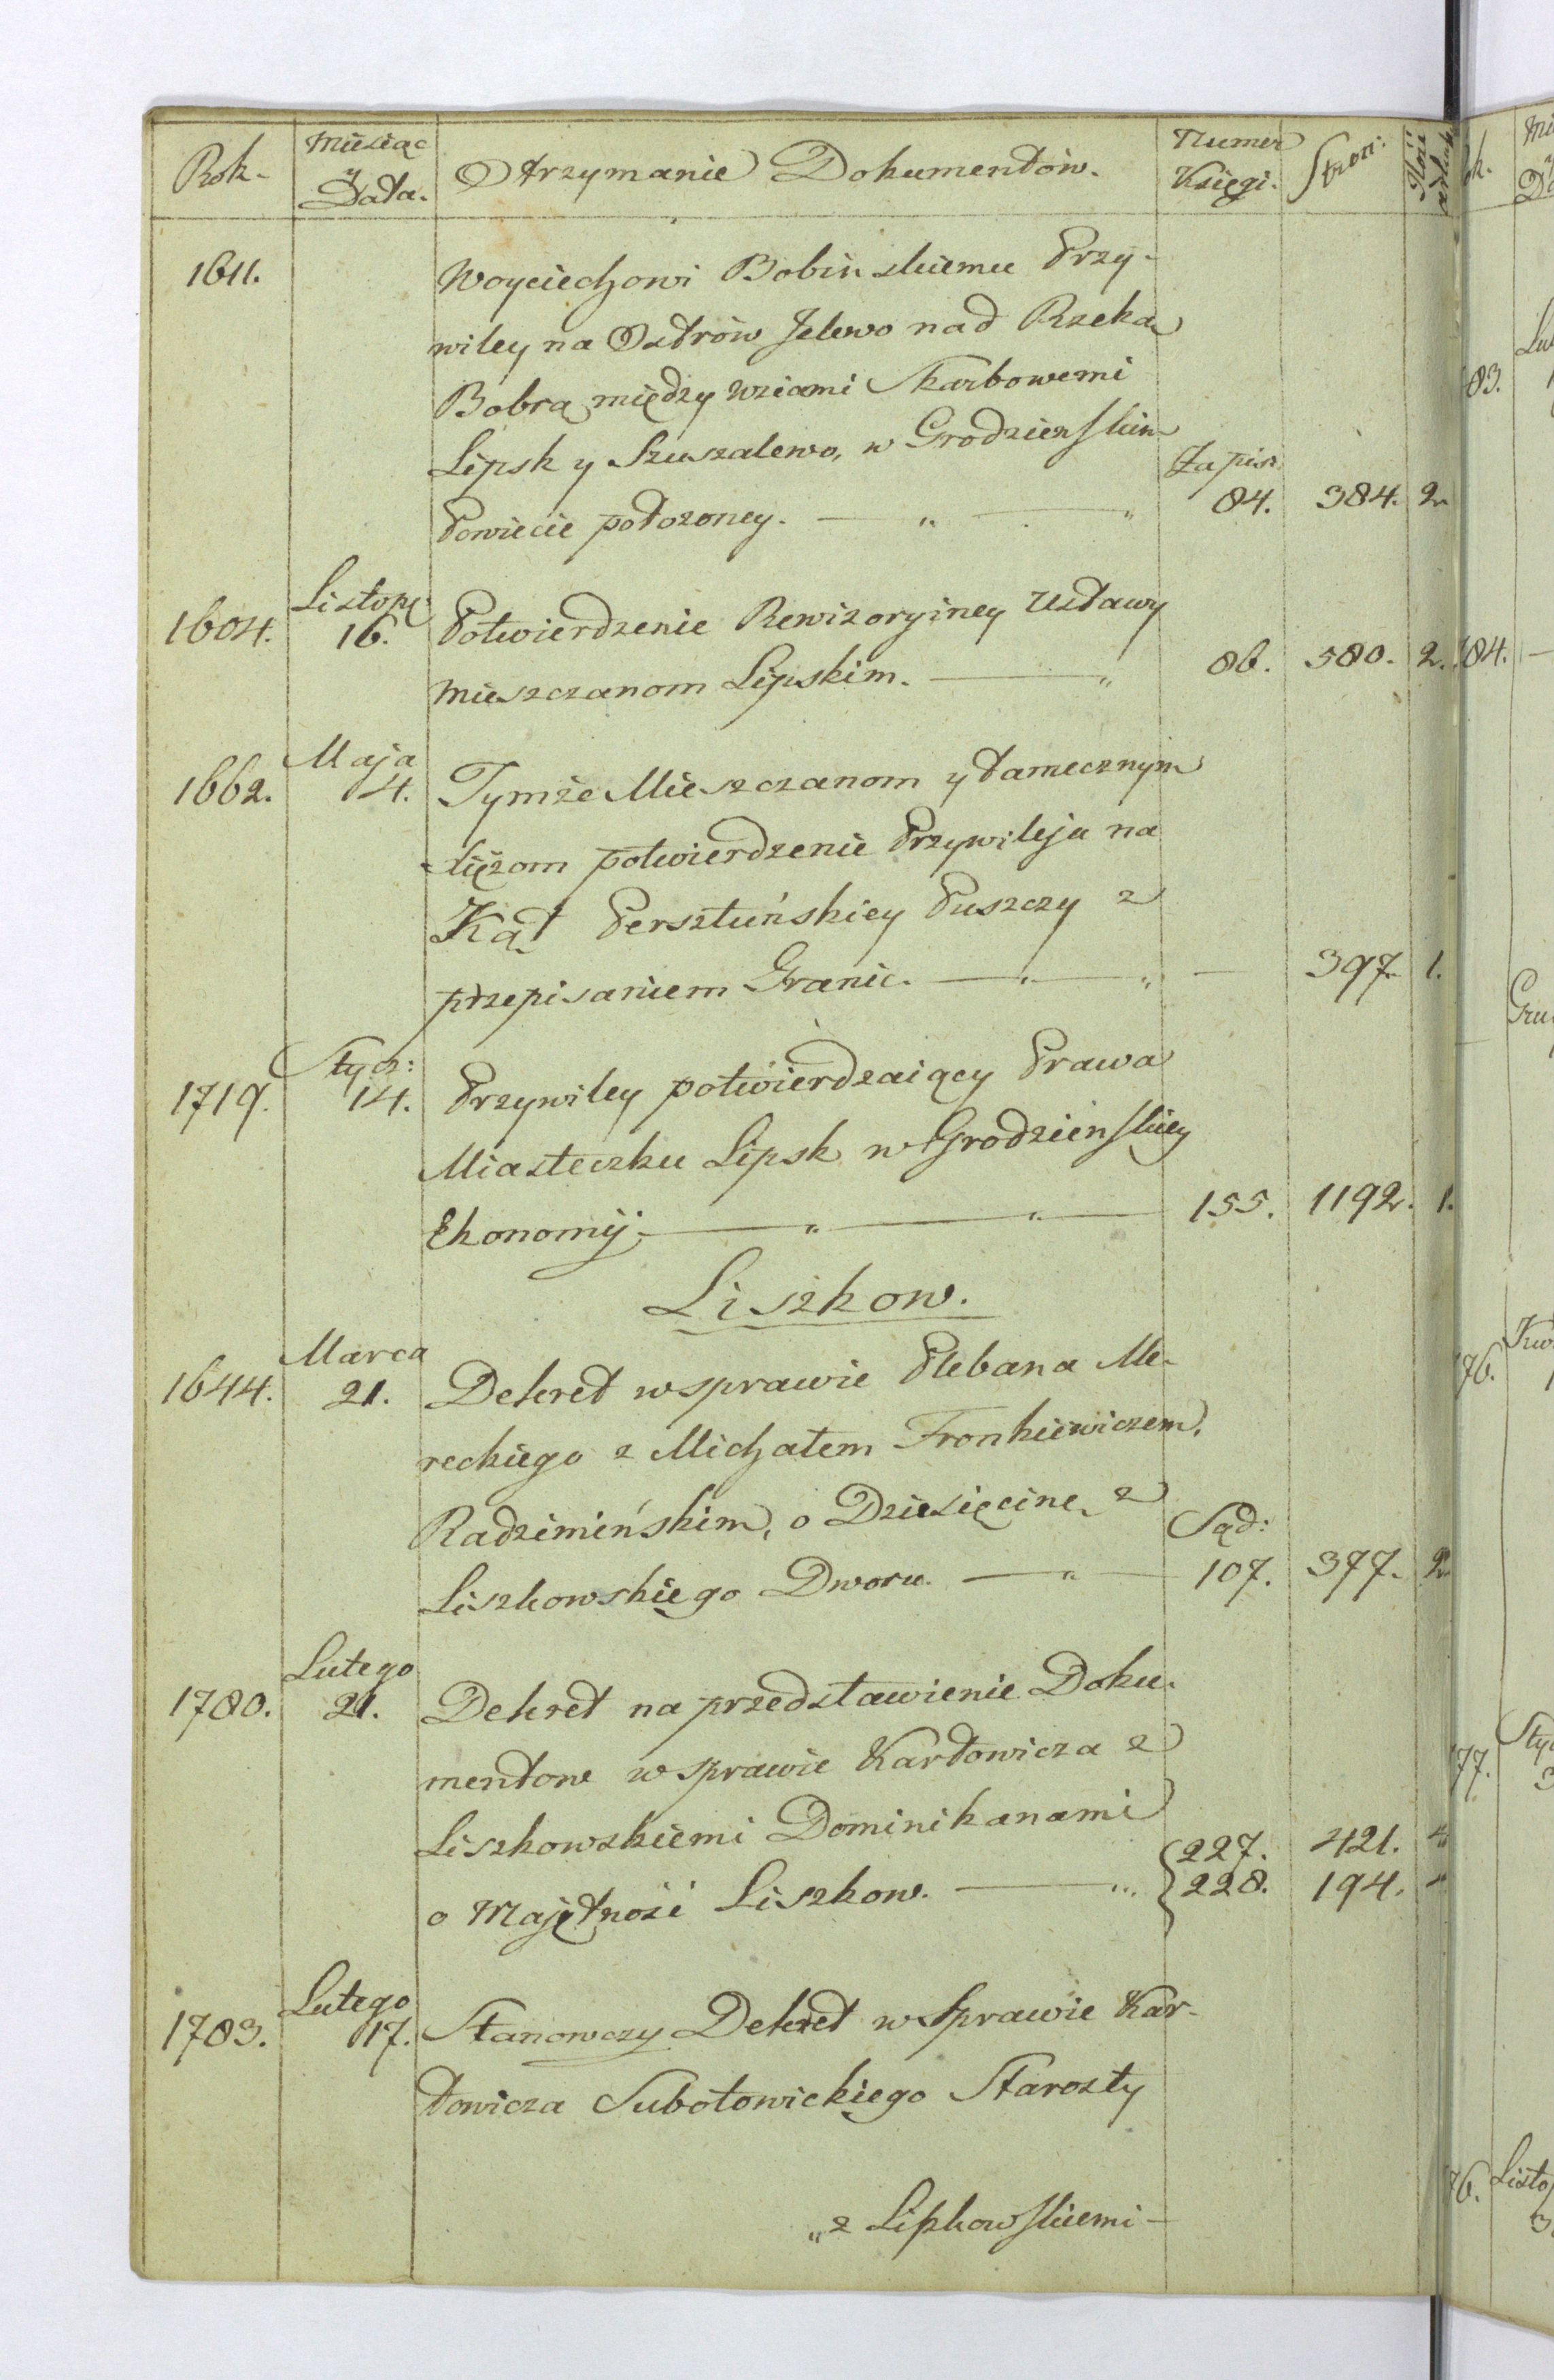 Rok. Miesiąc y Data. Otrzymanie Dokumentów. Numer Księgi. Stron: Ilość
1611. Woyciechowi Bobinskiemu Przy-
wiley na Ostrów Jelewo nad Rzeką
Bobrą między wsiami Skarbowemi
Lipsk y Szuszalewo, w Grodzienskim Zapis:
Powiecie położoney. 84. 384. 2.
Listop:
1604. 16. Potwierdzenie Rewizoryiney Ustawy
mieszczanom Lipskim. 86. 580. 2.
Maja
1662. 4. Tymże Mieszczanom y tamecznym
-liężom potwierdzenie Przywileja na
Kąt Persztuńskiey Puszczy z
przepisaniem Granic. 397. 1.
Stycz:
1719. 14. Przywiley potwierdzaiący Prawa
Miasteczku Lipsk w Grodzienskiey
Ekonomij. 155. 1192. 1.
Liszkow.
Marca
1644. 21. Dekret w sprawie Plebana Me-
reckiego z Michałem Fronkiewiczem
Radzimińskim, o Dziesięcinę z Sąd:
Liszkowskiego Dworu. 107. 377. 2.
Lutego
1780. 21. Dekret na przedstawienie Doku-
mentow w sprawie Karłowicza z
Liszkowskiemi Dominikanami 227. 421. 4
o Majętność Liszkow. 228. 194. "
Lutego
1783. 17. Stanowczy Dekret w Sprawie Kar-
łowicza Subotowickiego Starosty
„z Liszkowskiemi-